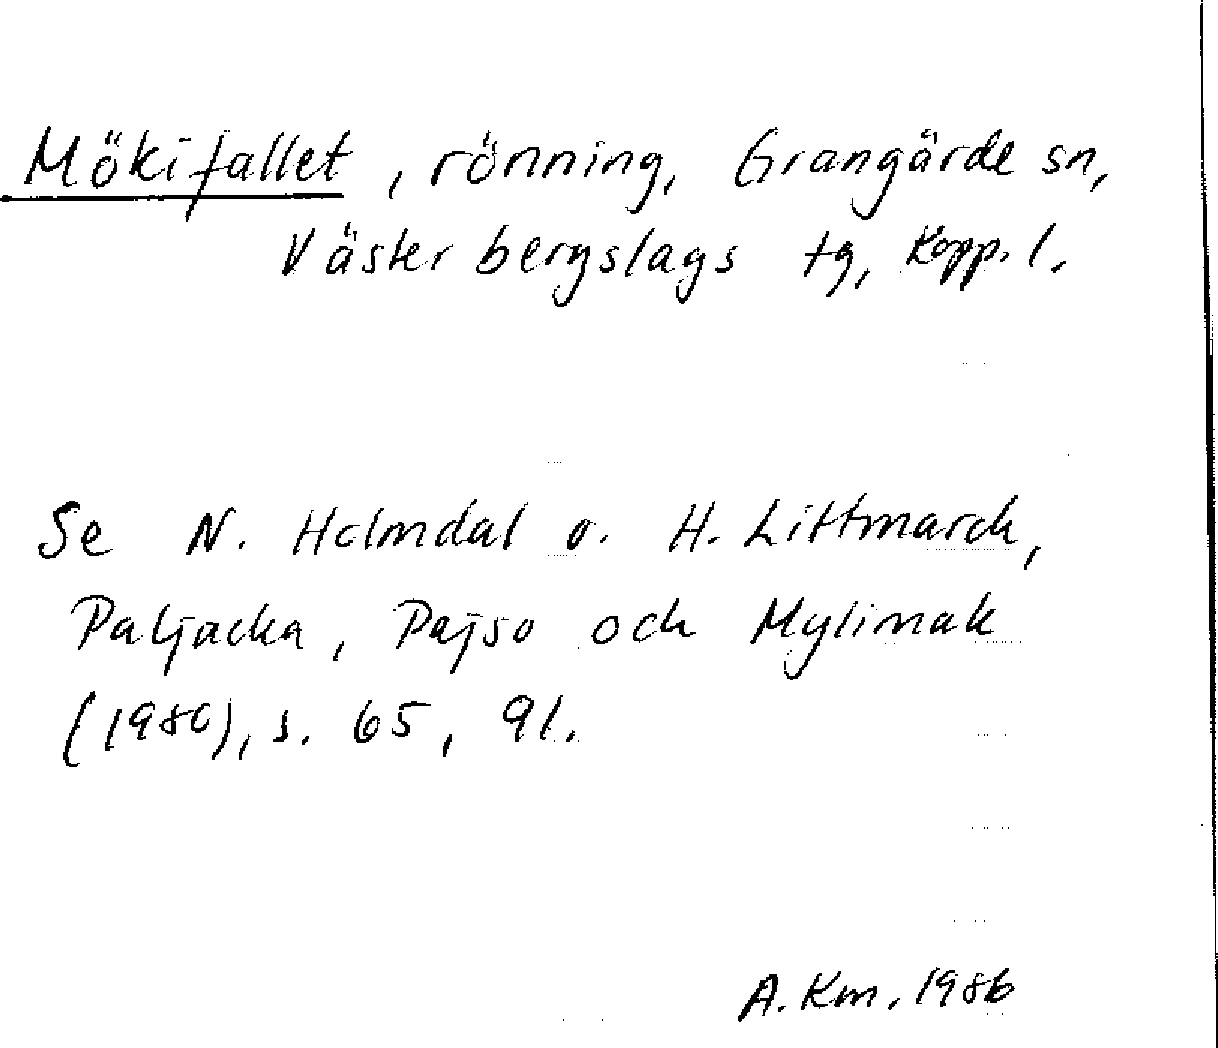 Mökifallet, rönning, Grangärde sn,
Västerbergslags tg, Kopp. l.
Se N. Holmdal o. H. Littmarck,
Paljacka, Pajso och Mylimak
(1980), s. 65, 91.
A. Km. 1986